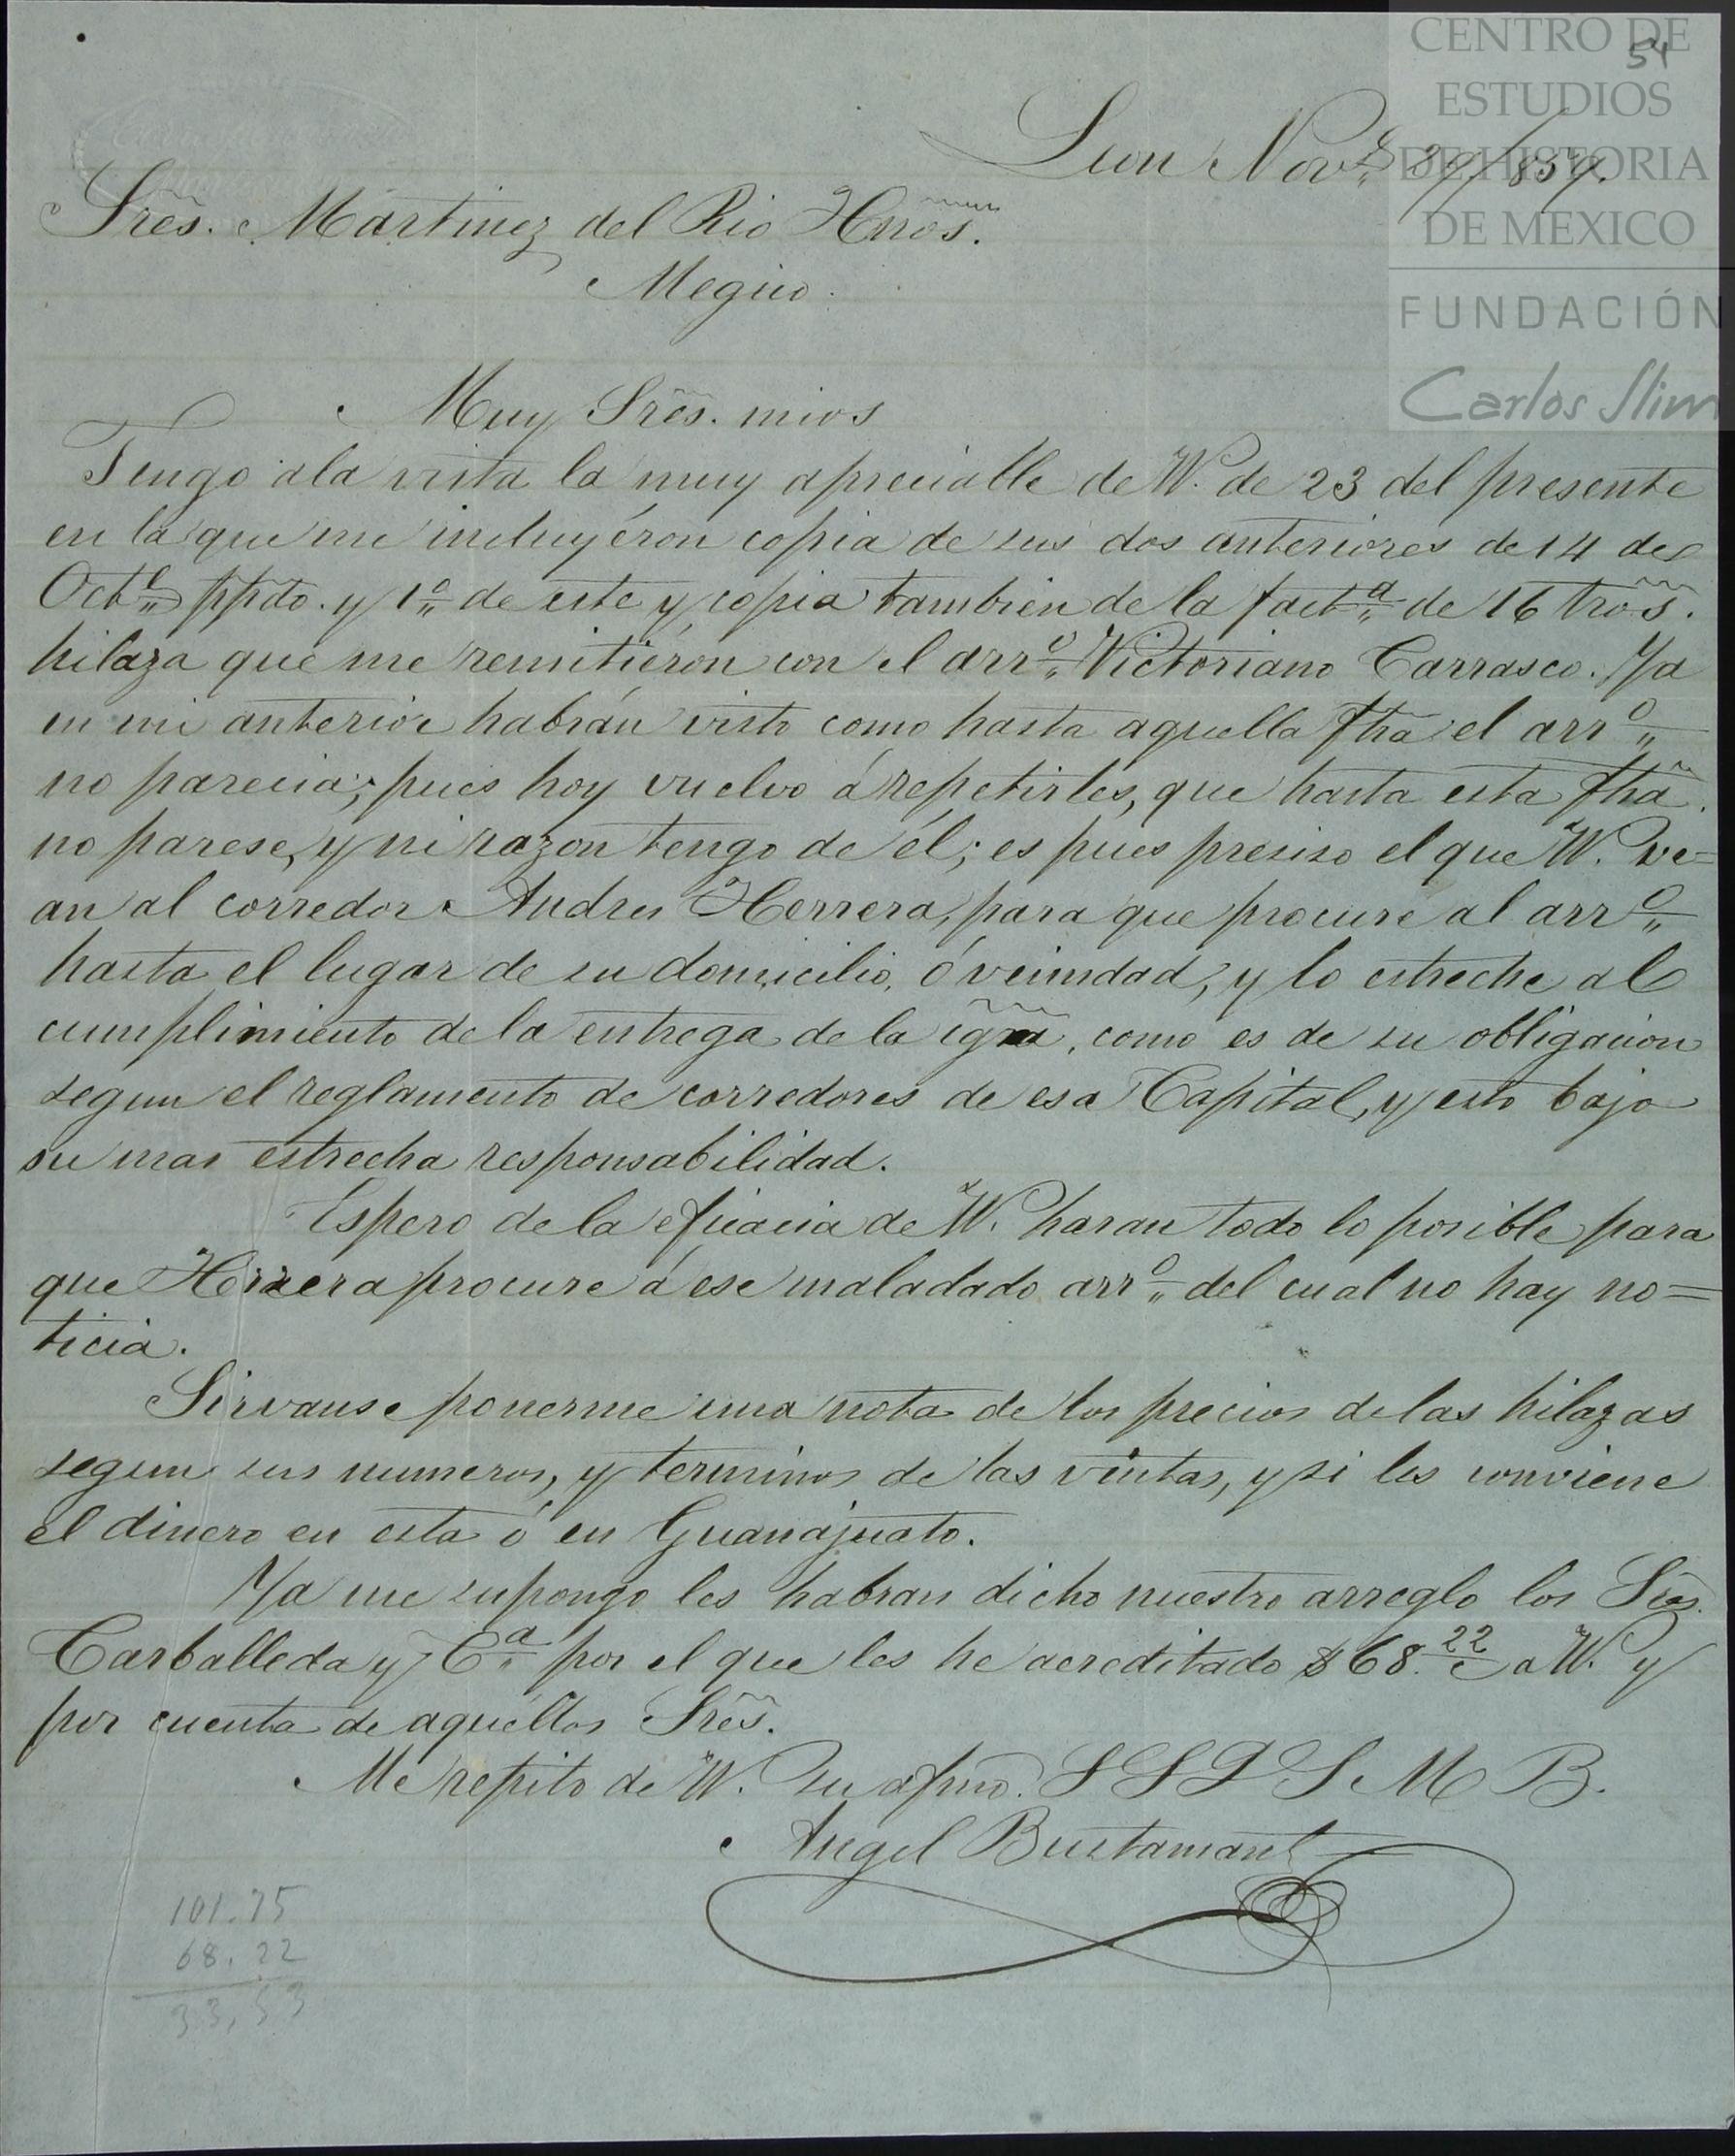 CENTRO DE
ESTUDIOS
DE HISTORIA
DE MEXICO
FUNDACIÓN
Carlos Slim
54
Leon Nov.e 29/859.
Sres. Martinez del Rio Hnos.
Megico.
Muy Sres. mios
Tengo ala vista la muy apreciable de VV. de 23 del presente
en la que me incluyéron copia de sus dos anteriores de 14 de
Octe. ppdo. y 1o. de este y copia tambien de la facta. de 16 tros.
hilaza que me remitiéron con el arro. Victoriano Carrasco. Ya
en mi anterior habrán visto como hasta aquella fha el arro.
no parecia; pues hoy vuelvo á repetirles, que hasta esta fha.
no parese, y ni razon tengo de él; es pues presiso el que VV. ve=
an al corredor Andres Herrera, para que procure al arro.
hasta el lugar de su domicilio, ó vecindad, y lo estreche al
cumplimiento de la entrega de la cgra, como es de su obligacion
segun el reglamento de corredores de esa Capital, y esto bajo
su mas estrecha responsabilidad.
Espero de la eficacia de VV. haran todo lo posible para
que Herrera procure á ese maladado arro. del cual no hay no=
ticia.
Sirvanse ponerme una nota de los precios de las hilazas
segun sus numeros, y terminos de las ventas, y si les conviene
el dinero en esta ó en Guanajuato.
Ya me supongo les habran dicho nuestro arreglo los Sres.
Carballeda y Ca. por el que les he acreditado $68.22c a VV. y
por cuenta de aquellos Sres.
Me repito de VV. su afmo. S S Q S. M B.
Angel Bustamante
101.75
68.22
33,53